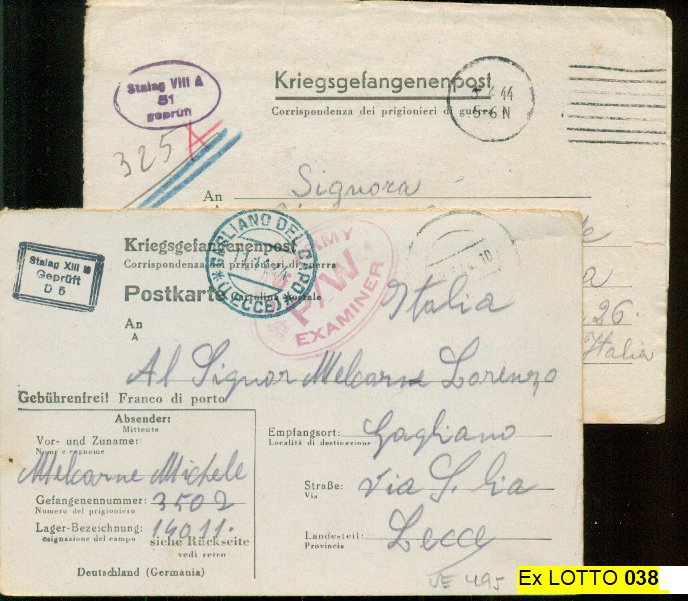 Stalag VIII A
51
geprüft
Kriegsgefangenenpost
Corrispondenza dei prigionieri di guerra
4.44
5-6 N
325
An
Signora
26.
Italia
Kriegsgefangenenpost
Corrispondenza dei prigionieri di guerra
Stalag XIII
Geprüft
D 5
GAGLIANO DEL CAPO
(LECCE)
ARMY
P/W
EXAMINER
10
Postkarte Cartolina postale
Italia
An
A
Al Signor Melcarne Lorenzo
Gebührenfrei! Franco di porto
Absender:
Mittente
Vor- und Zuname:
Nome e cognome
Melcarne Michele
Gefangenennummer: 3502
Numero del prigioniero
Lager-Bezeichnung: 14011.
esignazione del campo
siehe Rückseite
vedi retro
Deutschland (Germania)
Empfangsort: Gagliano
Località di destinazione
Straße: Via S. Lia
Via
Landesteil: Lecce
Provincia
Ex LOTTO 038